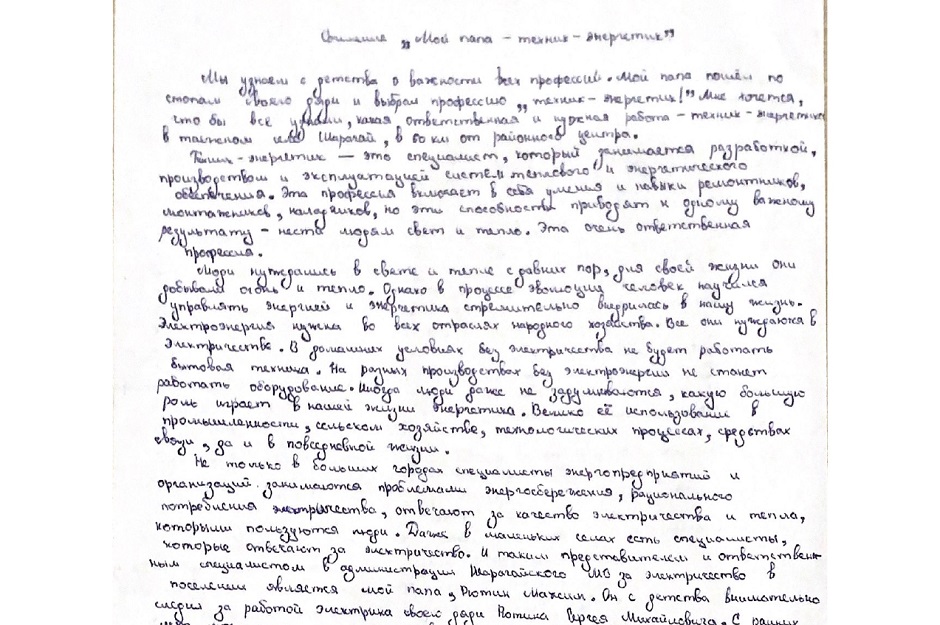 Сочинение „Мой папа - техник - энергетик”
Мы узнаем с детства о важности всех профессий. Мой папа пошёл по
стопам своего дяди и выбрал профессию „техник - энергетик!” Мне хочется,
что бы все узнали, какая ответственная и нужная работа - техник - энергетика
в таёжном селе Шарагай, в 60 км от районного центра.
Техник - энергетик — это специалист, который занимается разработкой,
производством и эксплуатацией систем теплового и энергетического
обеспечения. Эта профессия включает в себя умения и навыки ремонтников,
монтажников, наладчиков, но эти способности приводят к одному важному
результату - нести людям свет и тепло. Эта очень ответственная
профессия.
Люди нуждались в свете и тепле с давних пор, для своей жизни они
добывали огонь и тепло. Однако в процессе эволюции человек научился
управлять энергией и энергетика стремительно внедрилась в нашу жизнь.
Электроэнергия нужна во всех отраслях народного хозяйства. Все они нуждаются в
электричестве. В домашних условиях без электричества не будет работать
бытовая техника. На разных производствах без электроэнергии не станет
работать оборудование. Иногда люди даже не задумываются, какую большую
роль играет в нашей жизни энергетика. Велико её использование в
промышленности, сельском хозяйстве, технологических процессах, средствах
связи, да и в повседневной жизни.
Не только в больших городах специалисты энергопредприятий и
организаций занимаются проблемами энергосбережения, рационального
потребления электричества, отвечают за качество электричества и тепла,
которыми пользуются люди. Даже в маленьких селах есть специалисты,
которые отвечают за электричество. И таким представителем и ответствен-
ным специалистом в администрации Шарагайского МО за электричество в
поселении является мой папа, Рютин Максим. Он с детства внимательно
следил за работой электрика своего дяди Рютина Сергея Михайловича. С ранних